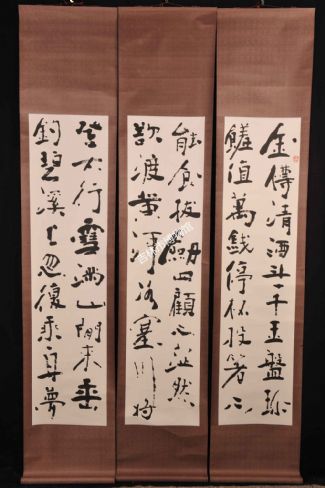 金樽清酒斗十千玉盤珍
饈值萬錢停杯投箸不
能食拔劍四顧心茫然
欲渡黃河冰塞川將
登太行雪滿山閒來垂
釣碧溪上忽復乘舟夢